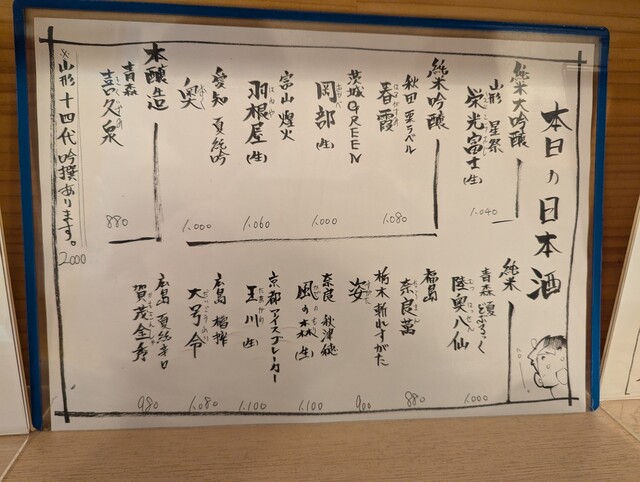 本日の日本酒
純米大吟醸
山形 星祭
栄光冨士(生)
1.040
純米吟醸
秋田 夏ラベル
春霞
1.080
茨城 GREEN
岡部(生)
1.000
富山 煌火
羽根屋(生)
1.060
愛知 夏純吟
奥
1.000
本醸造
青森
喜久泉
880
※山形 十四代吟撰あります。
2000
純米
青森
陸奥八仙
1.000
福島
奈良萬
880
栃木 斬れすがた
姿
900
奈良 秋津穂
風の森(生)
1.100
京都 アイスブレーカー
玉川(生)
1.100
広島
大号令
1.080
広島 夏純辛口
賀茂金秀
980